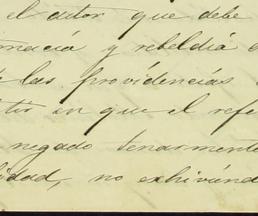 el autor que debe
y rebeldiá
las providencias
en que el refe
negado tenazmente
lidad, no exhiviénd